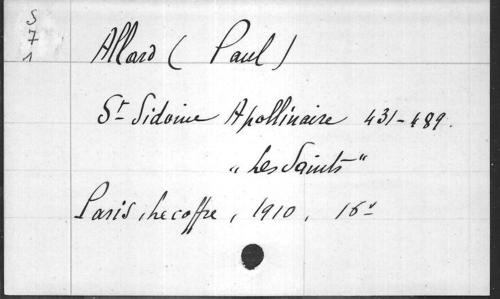 S
7
1
Allard ( Paul )
St Sidoine Apollinaire 431-489.
"Les Saints"
Paris, Lecoffre, 1910, 16º